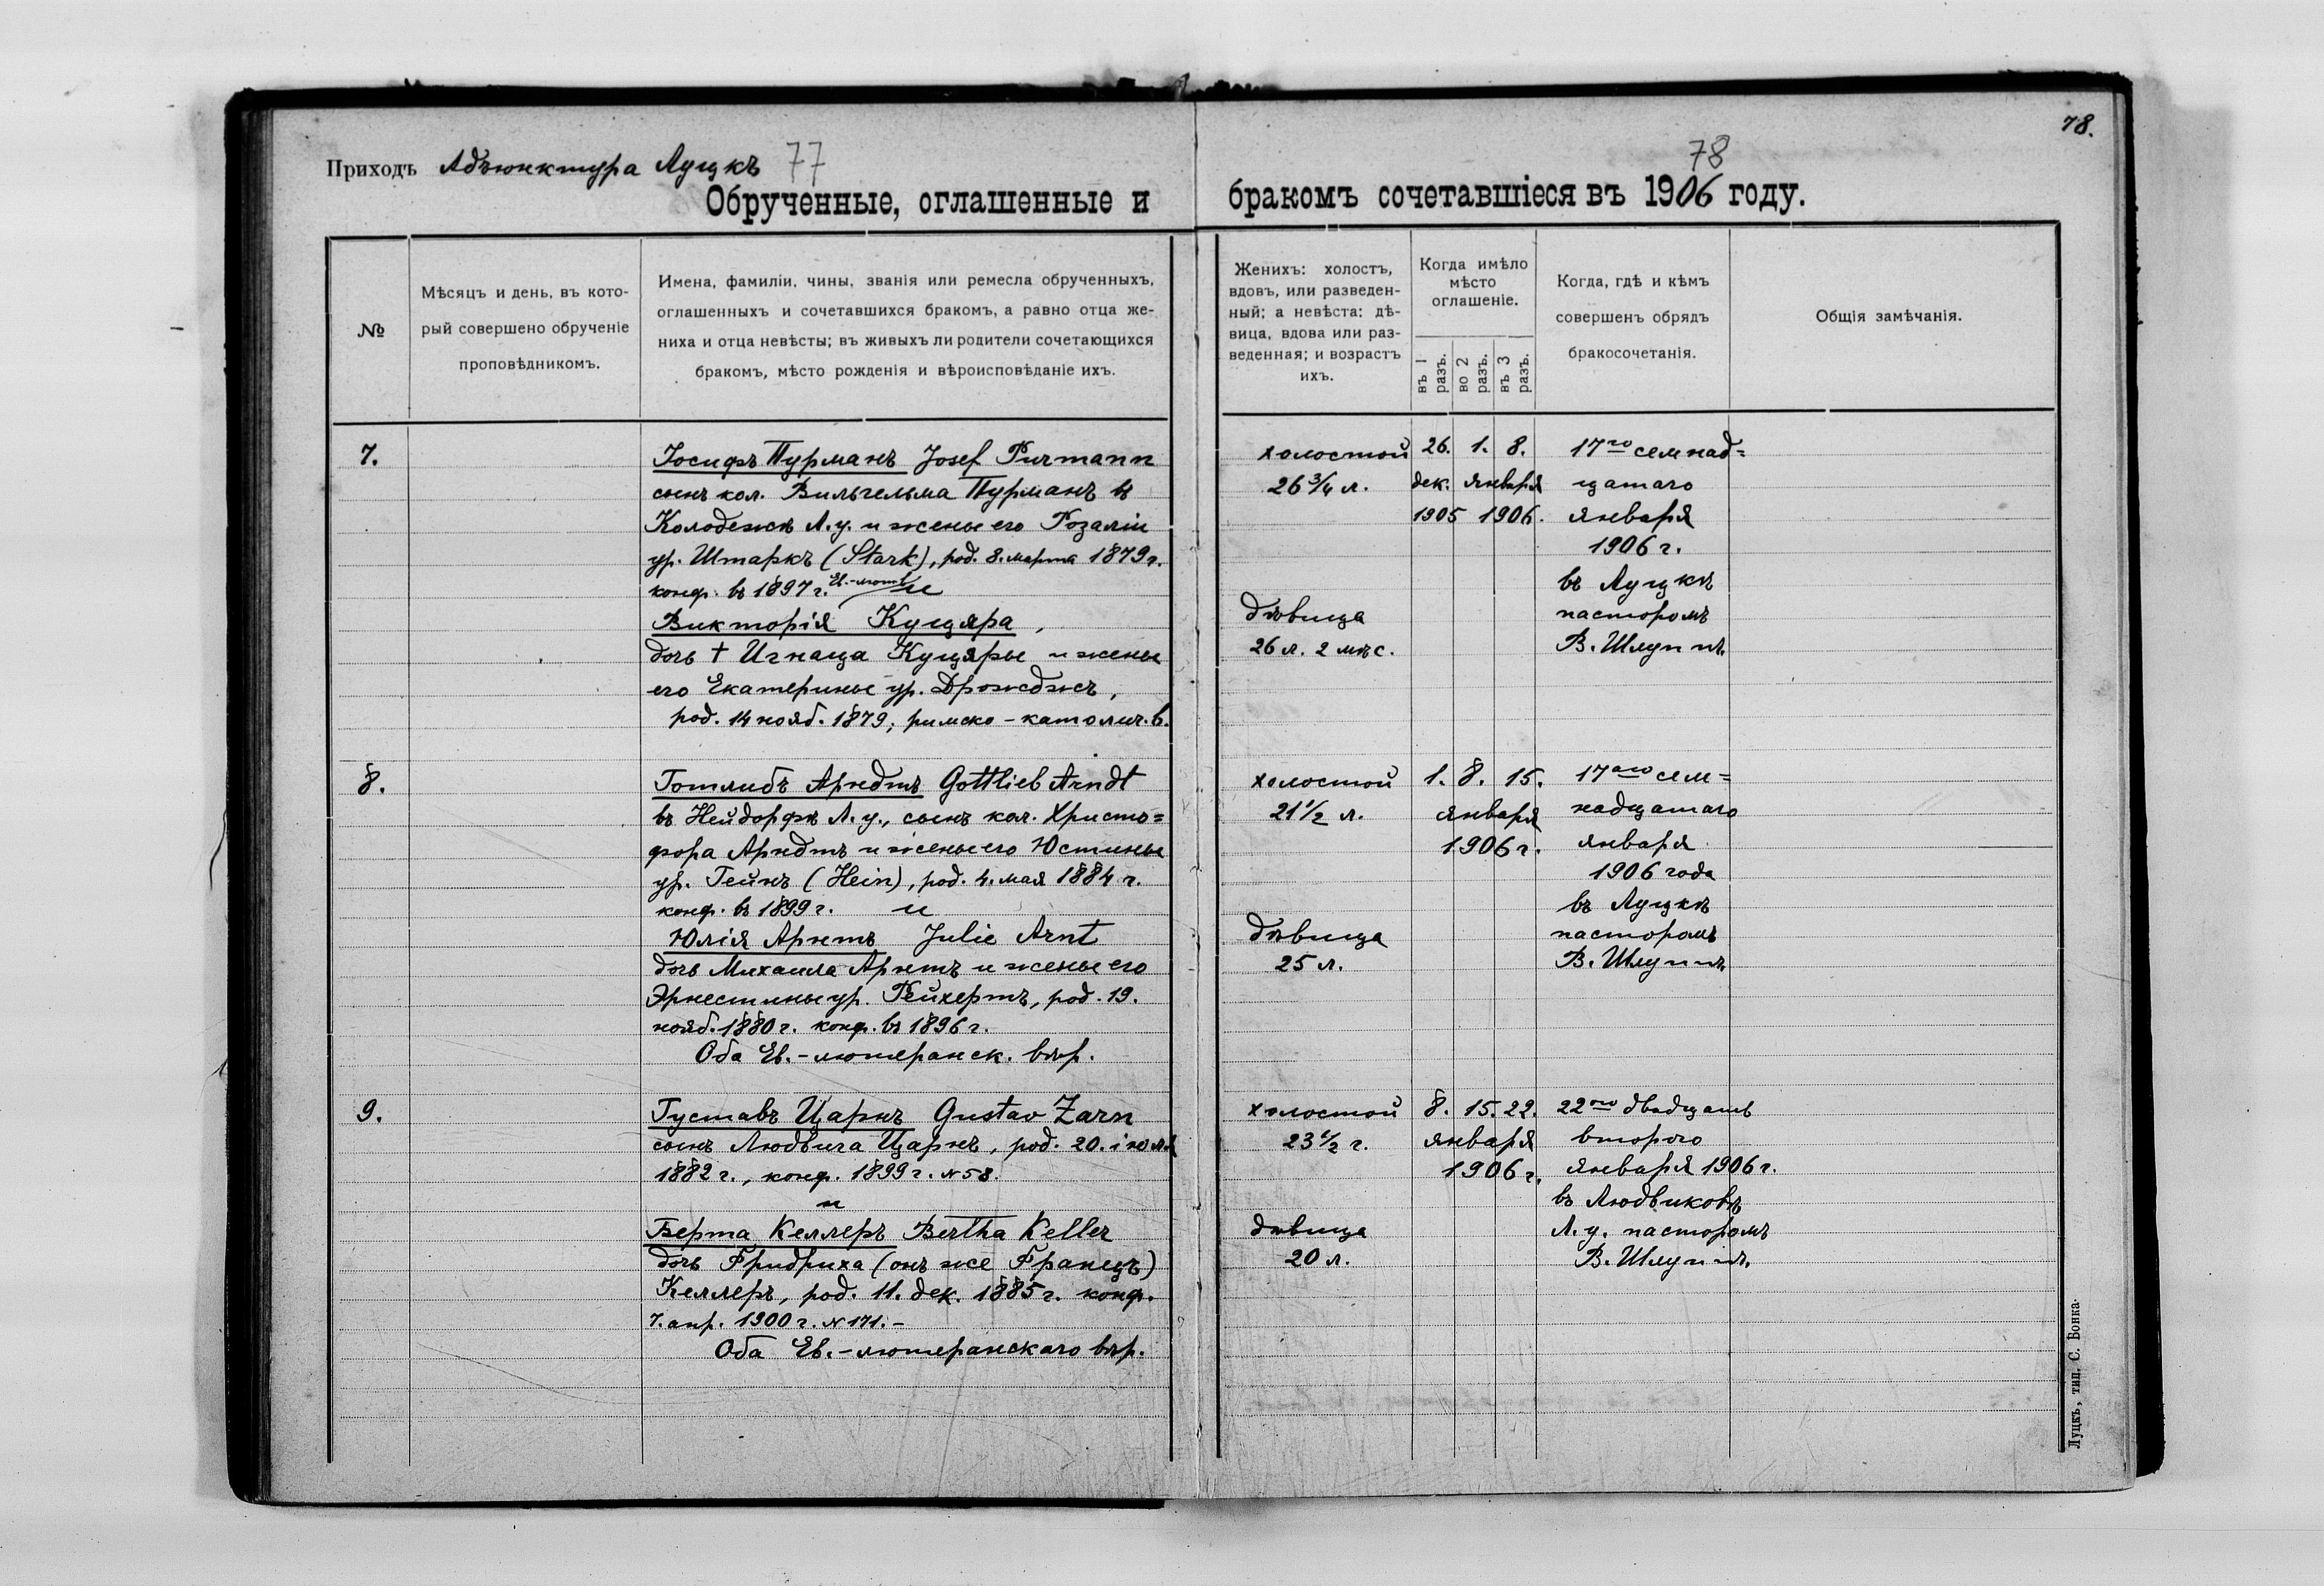 78.
Приходъ Адъюнктура Луцкъ 77
78
Обрученные, оглашенные и бракомъ сочетавшіеся въ 1906 году.
№
Мѣсяцъ и день, въ кото-
рый совершено обрученіе
проповѣдникомъ.
Имена, фамиліи, чины, званія или ремесла обрученныхъ,
оглашенныхъ и сочетавшихся бракомъ, а равно отца же-
ниха и отца невѣсты; въ живыхъ ли родители сочетающихся
бракомъ, мѣсто рожденія и вѣроисповѣданіе ихъ.
Женихъ: холостъ,
вдовъ, или разведен-
ный; а невѣста: дѣ-
вица, вдова или раз-
веденная; и возрастъ
ихъ.
Когда имѣло
мѣсто
оглашеніе.
въ 1
разъ.
во 2
разъ.
въ 3
разъ.
Когда, гдѣ и кѣмъ
совершенъ обрядъ
бракосочетанія.
Общія замѣчанія.
7.
Іосифъ Пурманъ Josef Purmann
сынъ кол. Вильгельма Пурманъ въ
Колодежѣ Л.у. и жены его Розаліи
ур. Штаркъ (Stark), род. 8. марта 1879 г.
конф. въ 1897 г. Ев.-лют. и
Викторія Куцяра,
дочь † Игнаца Куцяры и жены
его Екатерины ур. Дрожджъ,
род. 14 нояб. 1879, римско-католич. в.
холостой
26 3/4 л.
дѣвица
26 л. 2 мѣс.
26. 1. 8.
дек. января
1905 1906.
17го семнад=
цатаго
января
1906 г.
въ Луцкѣ
пасторомъ
В. Шлуппъ
8.
Готлибъ Арндтъ Gottlieb Arndt
въ Нейдорфѣ Л.у., сынъ кол. Христо=
фора Арндтъ и жены его Юстины
ур. Гейнъ (Hein), род. 4. мая 1884 г.
конф. въ 1899 г. и
Юлія Арнтъ Julie Arnt
дочь Михаила Арнтъ и жены его
Эрнестины ур. Рейхертъ, род. 19.
нояб. 1880 г. конф. въ 1896 г.
Оба Ев.-лютеранск. вѣр.
холостой
21 1/2 л.
дѣвица
25 л.
1. 8. 15.
января
1906 г.
17аго сем=
надцатаго
января
1906 года
въ Луцкѣ
пасторомъ
В. Шлуппъ
9.
Густавъ Царнъ Gustav Zarn
сынъ Людвига Царнъ, род. 20. іюля
1882 г., конф. 1899 г. N 58.
и
Берта Келлеръ Bertha Keller
дочь Фридриха (онъ же Францъ)
Келлеръ, род. 11. дек. 1885 г. конф.
7. апр. 1900 г. N 171.-
Оба Ев.-лютеранскаго вѣр.
холостой
23 1/2 г.
дѣвица
20 л.
8. 15. 22.
января
1906 г.
22го двадцать
второго
января 1906 г.
въ Людвиковѣ
Л.у. пасторомъ
В. Шлуппъ.
Луцкъ, тип. С. Бонка.